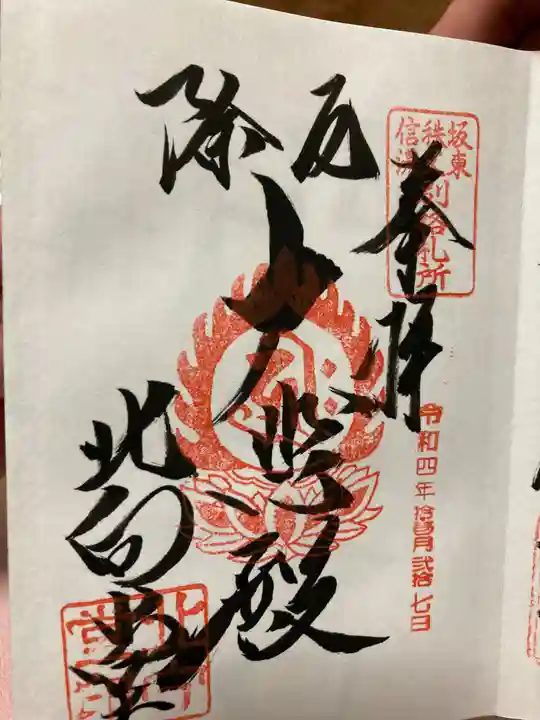 坂東
秩父
信濃
別格札所
奉拝
令和四年拾壱月弐拾七日
厄除
大悲殿
北向堂